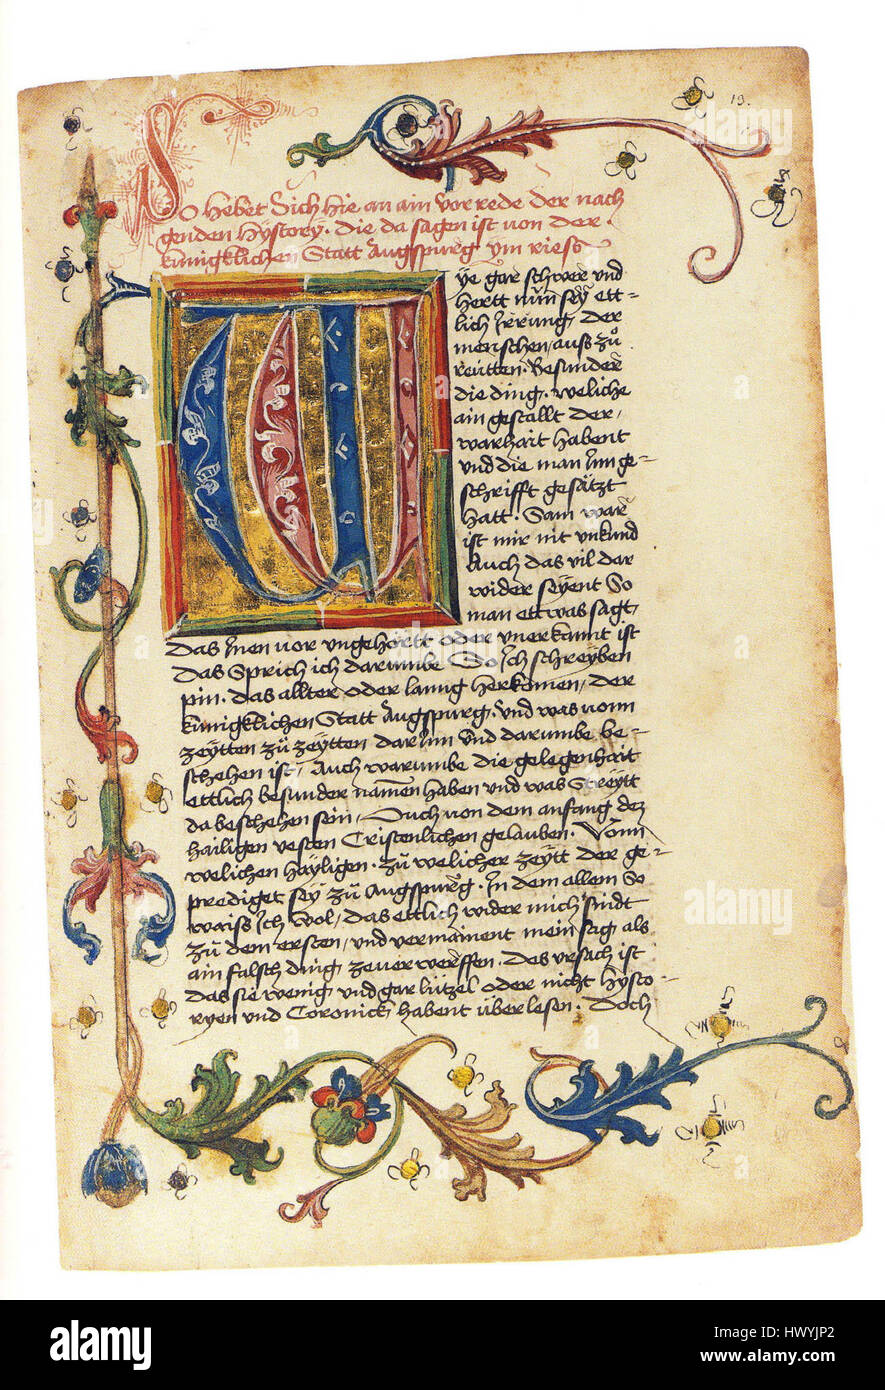 13.
So hebet sich hie an ain vor rede der nach
genden hystory. die da sagen ist von der
künigklichen Statt Augspurg ym riess
Wye gar schwer und
hertt nun sey ett-
lich Irrung, der
menschen, auss zů
reütten. Besunder
die ding. weliche
ain gestallt der,
warhait habent
und die man Inn ge-
schrifft gesätzt
hatt. Sam war
ist mir nit unkund
Auch das vil dar
wider seyent So
man ettwas sagt,
das Inen vor ungehörtt oder unerkannt ist
Das Sprich ich darumbe So Ich schreyben
pin. das allter oder lanng herkomen, der
künigklichen Statt Augspurg. und was vonn
zeytten zů zeytten dar Inn und darumbe be-
schehen ist, Auch warumbe die gelegenhait
ettlich besunder namen haben und was Streytt
da beschehen sein, Ouch von dem anfang dez
hailigen vesten Cristenlichen gelauben. Vonn
welichen hayligen. zů welicher zeytt der ge-
prediget sey zů Augspurg. In dem allem So
waiss Ich wol, das ettlich wider mich sindt
zů dem ersten, und vermainent mein sag als
ain falsch ding zeuerwerffen. Das ursach ist
das sie wenig und gar lützel oder nicht hysto-
ryen und Coronick habent überlesen. Doch
alamy
Image ID: HWYJP2
www.alamy.com